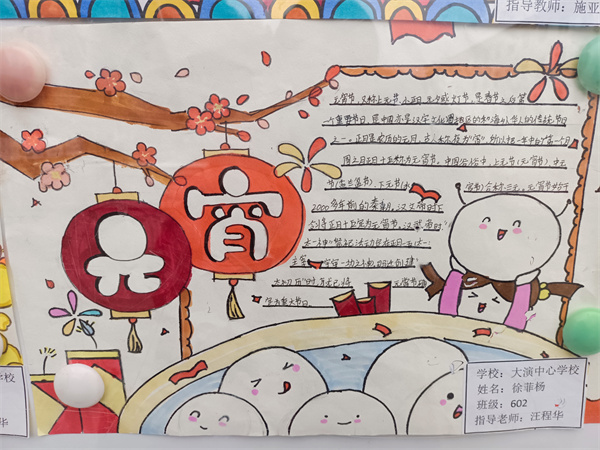 指导教师：施亚
元宵
元宵节，又称上元节、小正月、元夕或灯节，是春节之后第
一个重要节日，是中国亦是汉字文化圈地区的和海外华人的传统节日
之一。正月是农历的元月，古人称夜为"宵"，所以把一年中的第一个月
圆之月正月十五称为元宵节。中国俗称中，上元节（元宵节）、中元
节（盂兰盆节）、下元节（水
官节）合称三元。元宵节始于
2000多年前的秦朝。汉文帝时下
令将正月十五定为元宵节。汉武帝时
"太一神"祭祀活动定在正月十五
学校：大演中心学校
姓名：徐菲杨
班级：602
指导老师：汪程华
校
华